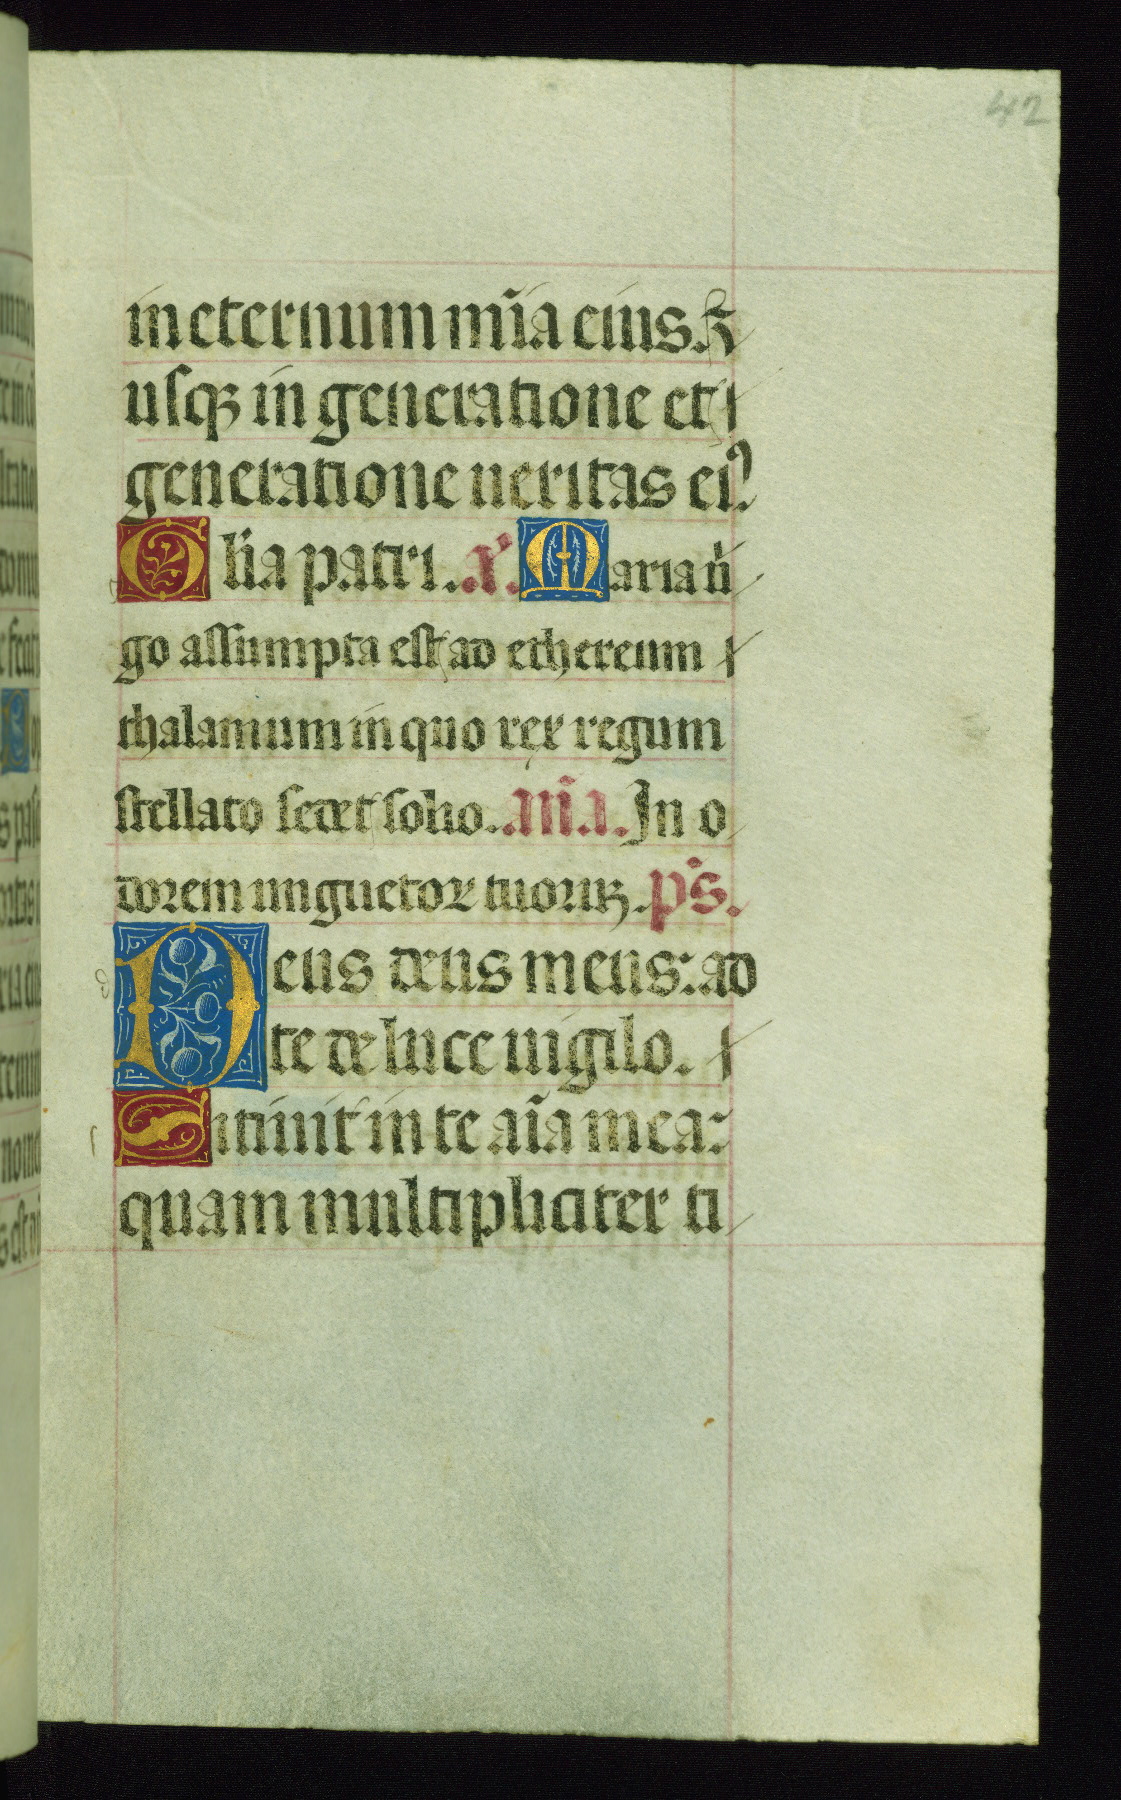 42
in eternum mĩa eius. ⁊
usqꝫ in generatione et
generatione ueritas eiꝰ.
Glĩa patri. ã. Maria ũi
go assumpta est ad ethereum
thalamum in quo rex regum
stellato sedet solio. añ.a. In o
dorem unguetoꝝ tuoruꝫ. ps̃.
Deus deus meus: ad
te de luce uigilo.
Sitiuit in te aĩa mea:
quam multipliciter ti